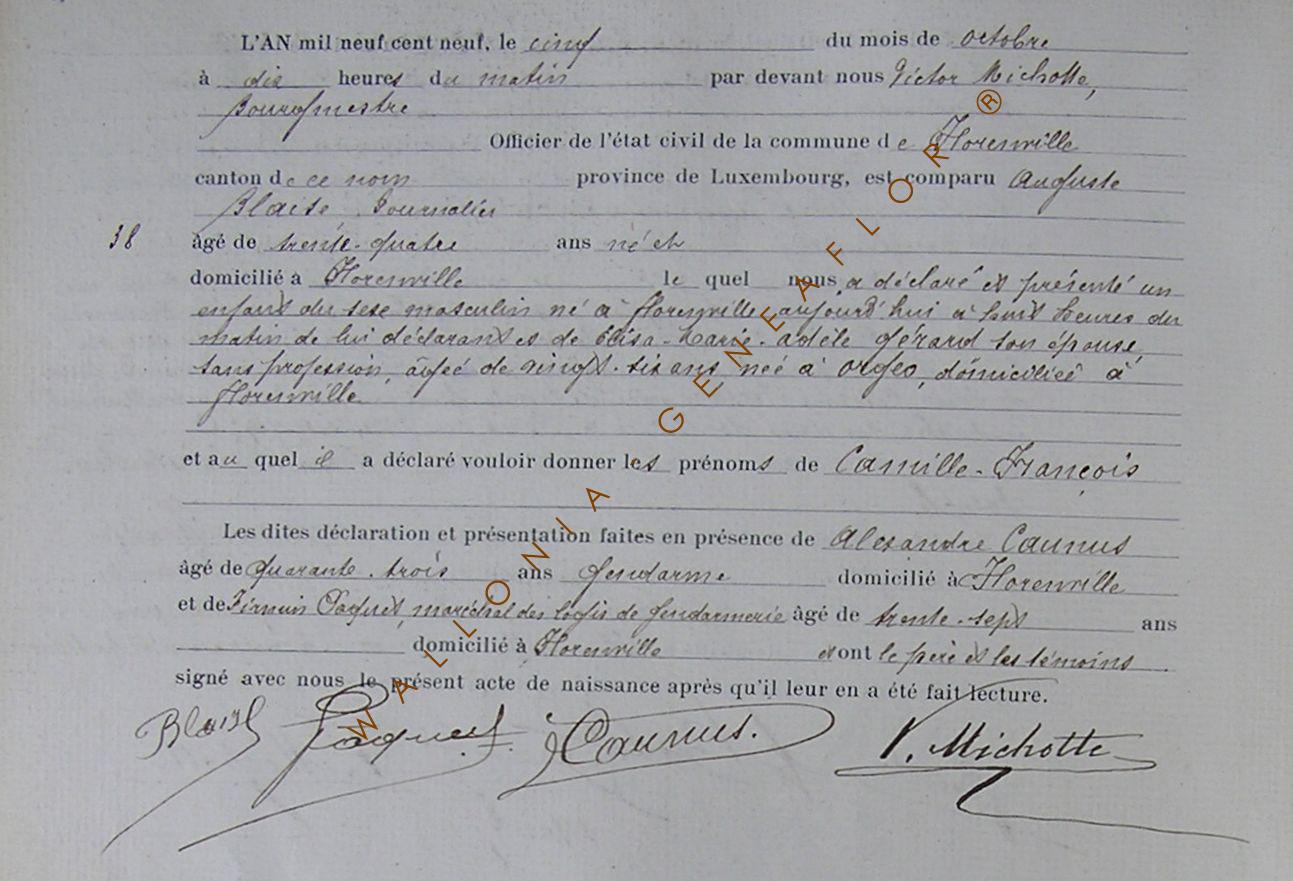 L'AN mil neuf cent neuf, le cinq du mois de octobre
à dix heures du matin par devant nous Victor Michotte,
Bourgmestre
Officier de l'état civil de la commune de Florenville
canton de ce nom province de Luxembourg, est comparu Auguste
Blaise Journalier
38 âgé de trente-quatre ans né et
domicilié à Florenville le quel nous a déclaré et présenté un
enfant du sexe masculin né à Florenville aujourd'hui à huit heures du
matin de lui déclarant et de Elisa-Marie-Adèle Gérard son épouse,
sans profession, âgée de vingt-six ans née à Orgeo, domiciliée à
Florenville
et au quel il a déclaré vouloir donner les prénoms de Camille-François
Les dites déclaration et présentation faites en présence de Alexandre Caunus
âgé de quarante-trois ans gendarme domicilié à Florenville
et de Firmin Paquet, maréchal des logis de gendarmerie âgé de trente-sept ans
domicilié à Florenville et ont le père et les témoins
signé avec nous le présent acte de naissance après qu'il leur en a été fait lecture.
Blaise Paquet Caunus. V. Michotte
WALLONIA.GENEAFLOR®